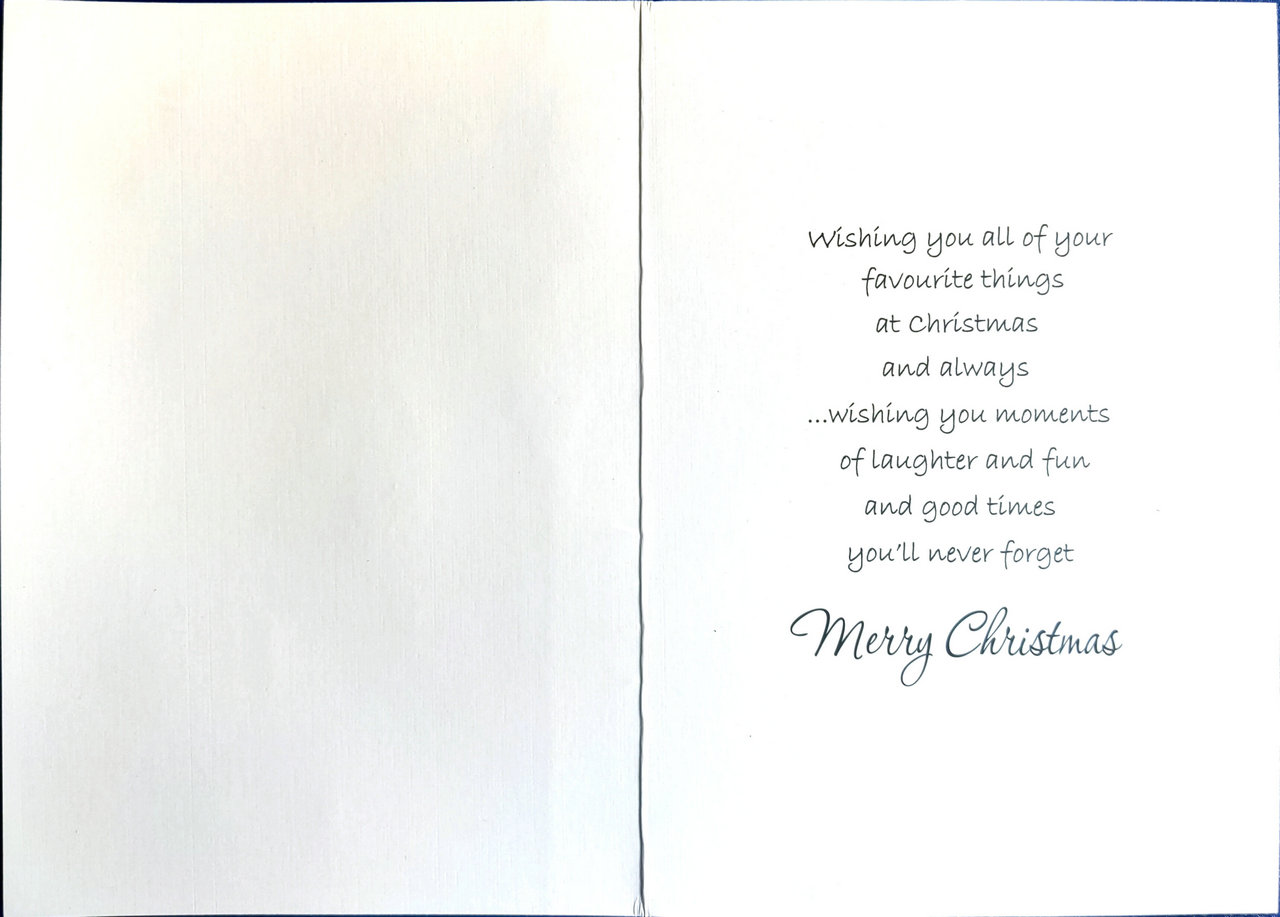 Wishing you all of your
favourite things
at Christmas
and always
...wishing you moments
of laughter and fun
and good times
you'll never forget
Merry Christmas